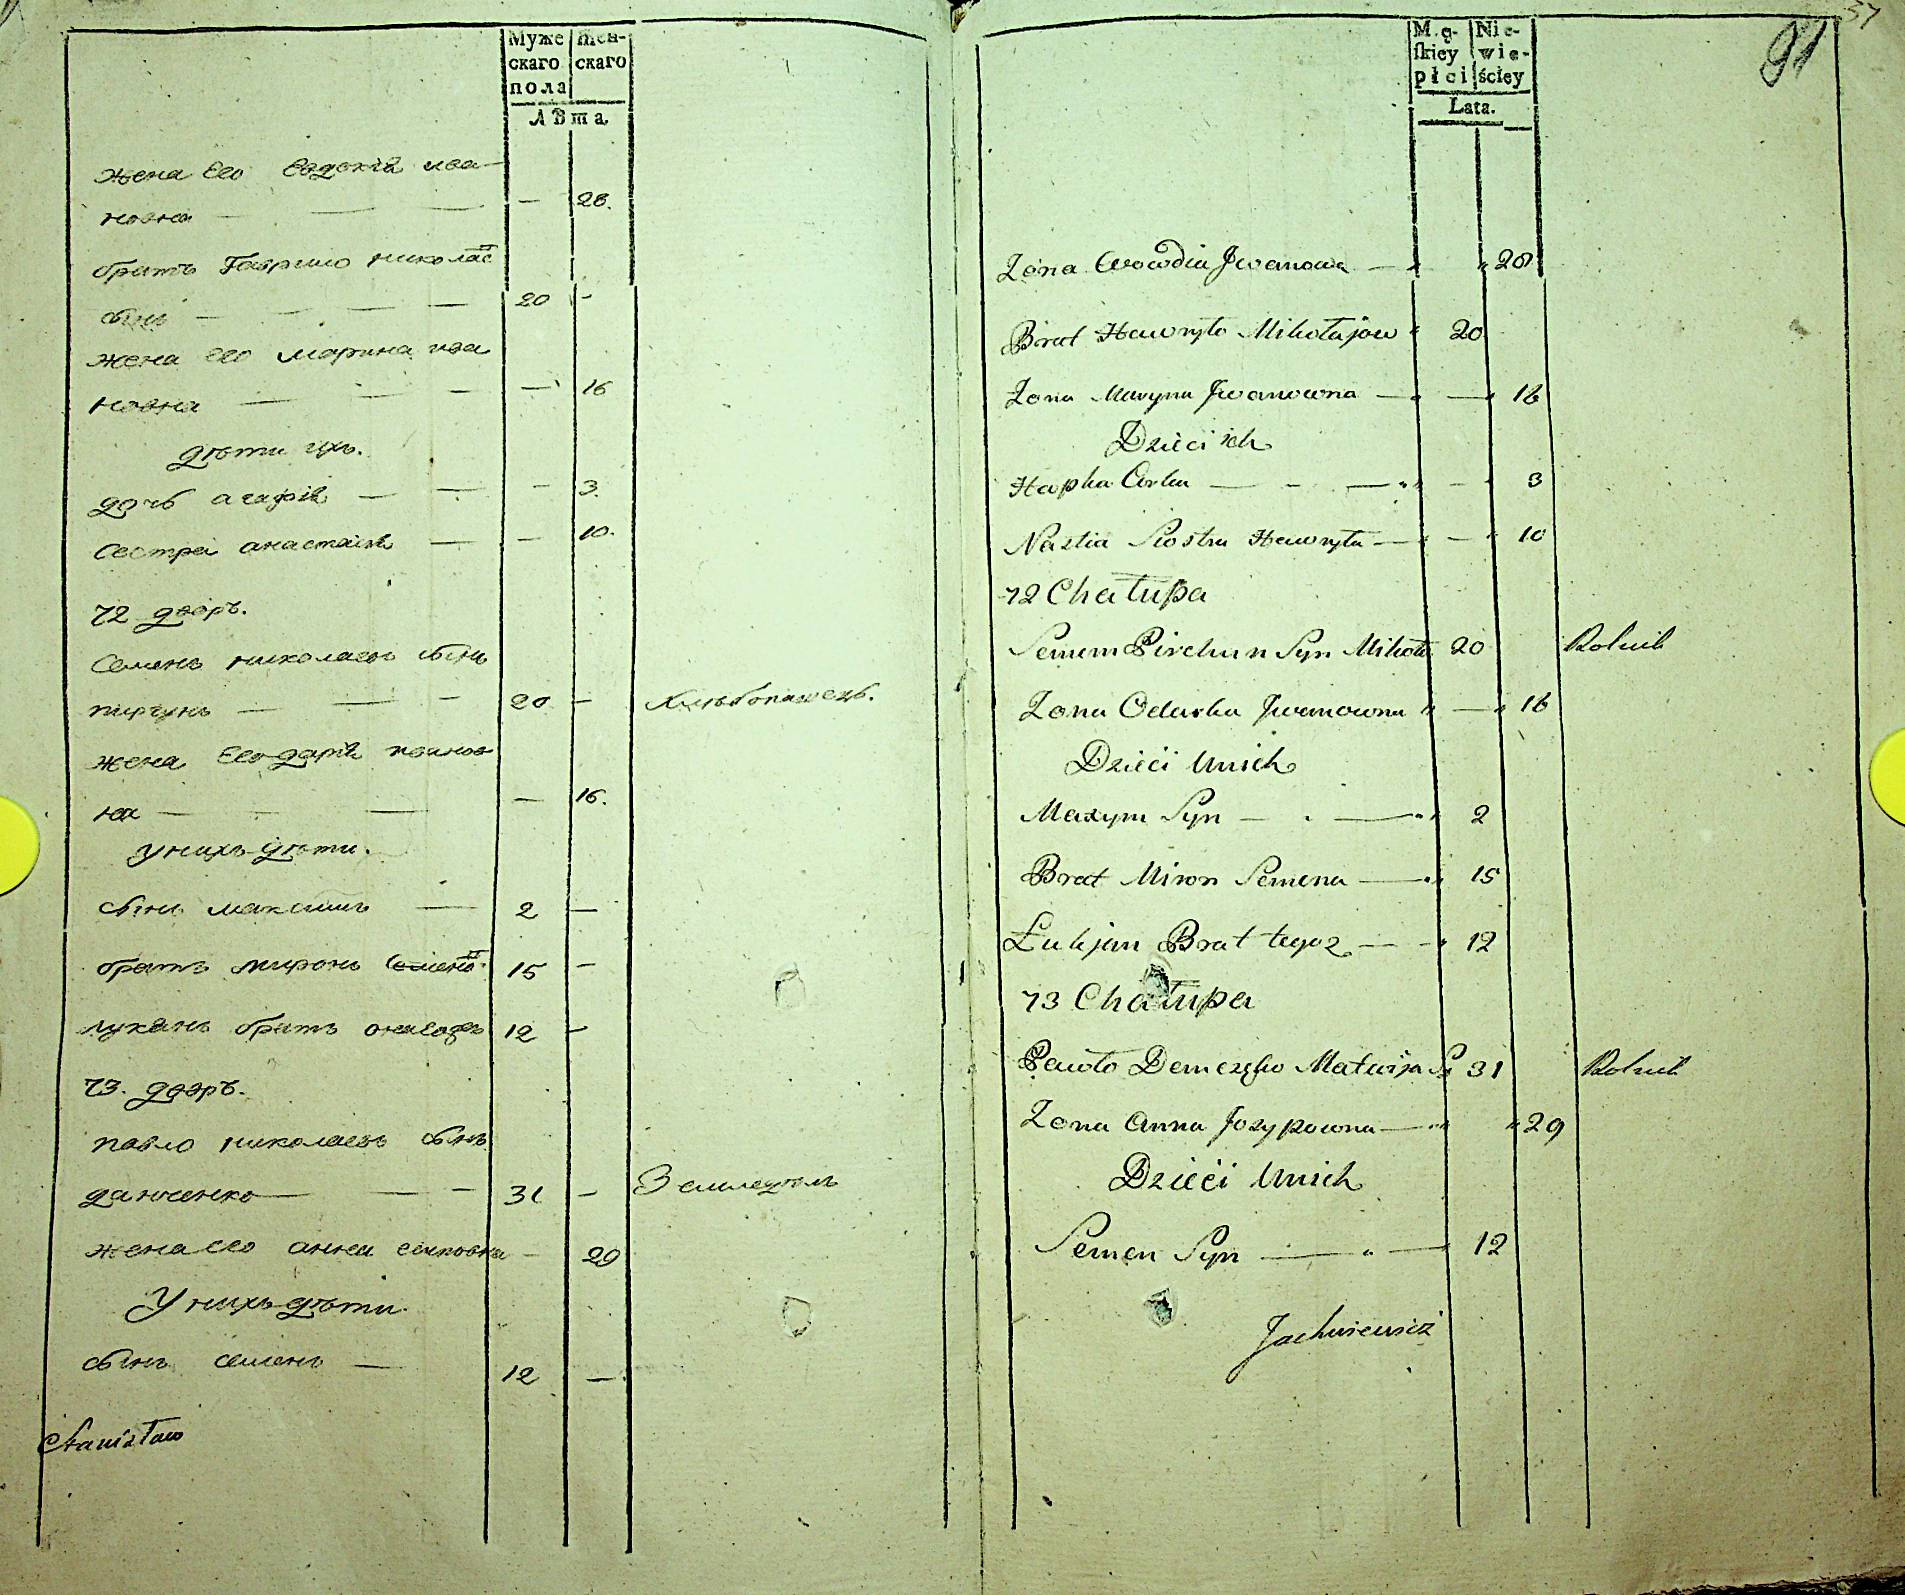 Муже
скаго
пола
Жен-
скаго
Лѣта.
жена Его Евдокія ива
новна — — — — 28.
братъ Гаврило николае
сынъ — — — — 20 -
жена его марина ива
новна — — — — 16
дѣти ихъ.
дочь агафія — — - 3.
Сестра анастасія — - 10.
72 дворъ.
Семенъ николаевъ сынъ
пирчунъ — — — 20 — Хлѣбопашецъ.
жена Его дарія иванов
на — — — 16.
У нихъ дѣти.
сынъ максимъ — 2 —
братъ миронъ Семена 15 —
лукянъ братъ 12 —
73. дворъ.
павло николаевъ сынъ
— — 31 —
жена его анна — 29
У нихъ дѣти.
сынъ семенъ — 12 —
Stanisław
37
91
Mę-
skiey
płci
Nie-
wie-
ściey
Lata.
Zona Iwanowa — " 28
Brat Hawryło Mikołajow " 20
Zona Maryna Iwanowna — — " 16
Dzieci ich
Hapka Corka — - — " - " 3
Nastia Siostra Hawryła — " — " 10
72 Chałupa
Semem Pirchun Syn Mikoła 20 Rolnik
Zona Odarka Iwanowna " — " 16
Dzieci U nich
Maxym Syn — " — " 2
Brat Miron Semena — " 15
Łukjan Brat tegoz — " 12
73 Chałupa
Pawło Matwija Sy 31 Rolnik
Zona Anna Jozypowna — " " 29
Dzieci U nich
Semen Syn — " — 12